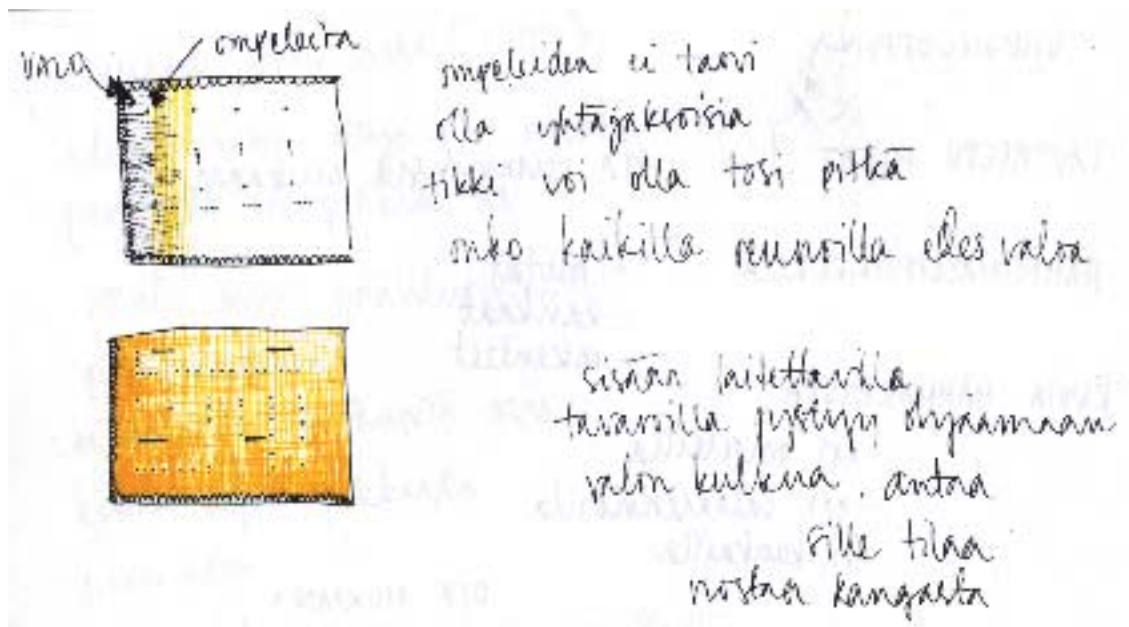 vara
ompeleita
ompeleiden ei tarvi
olla yhtäjaksoisia
tikki voi olla tosi pitkä
onko kaikilla reunoilla edes valoa
sisään laitettavilla
tavaroilla pystyy ohjaamaan
valon kulkua, antaa
sille tilaa
nostaa kangasta